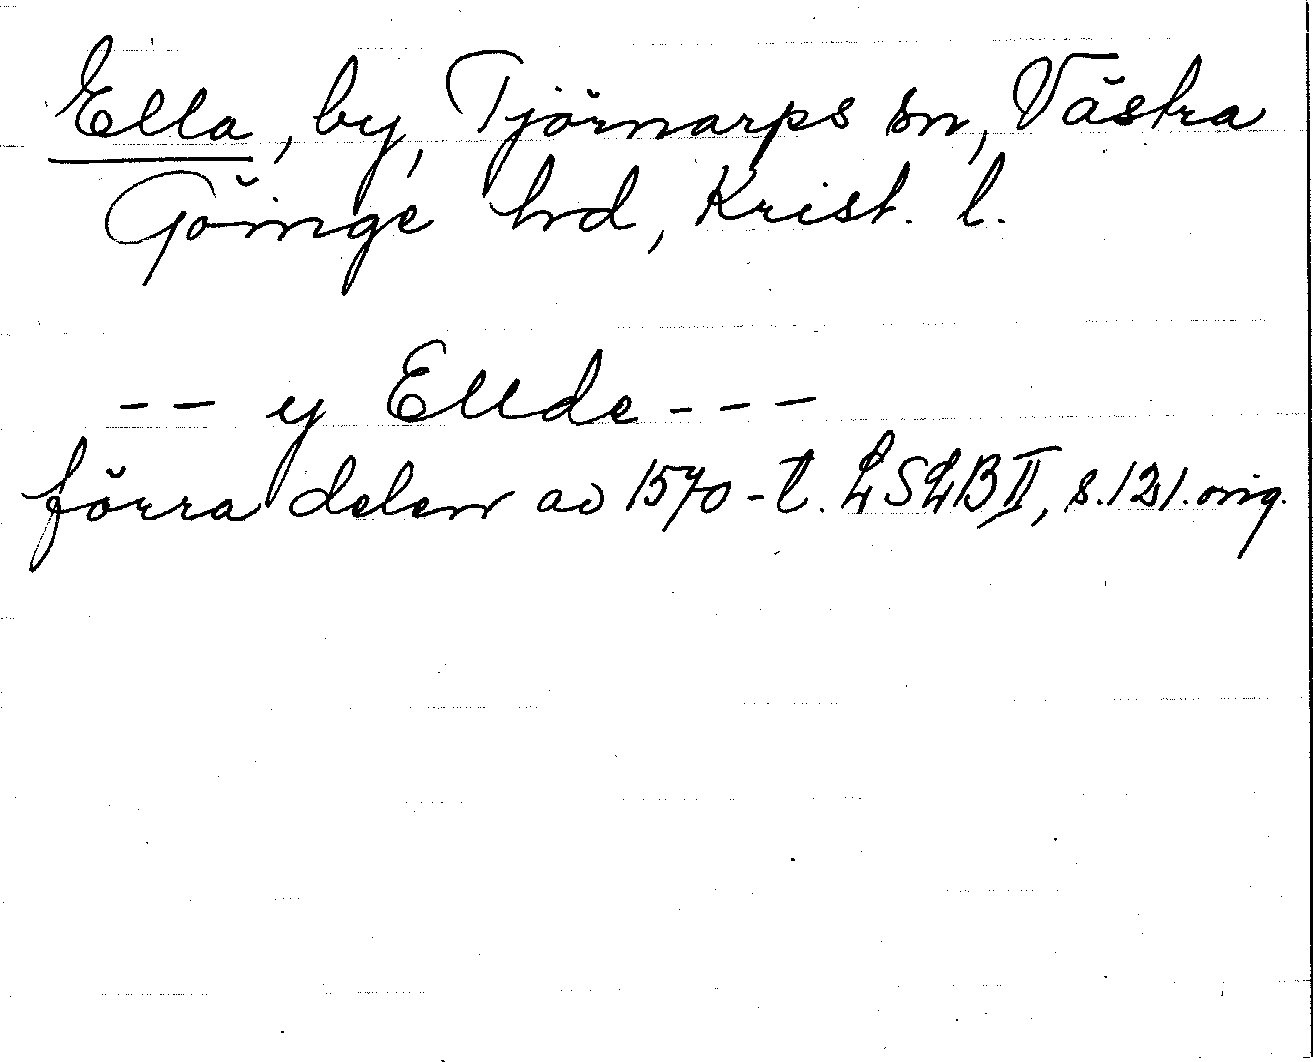 Ella, by, Tjörnarps sn, Västra
Göinge hd, Krist. l.
-- y Ellde ---
förra delen av 1570-t. LSLB II, s. 121. orig.